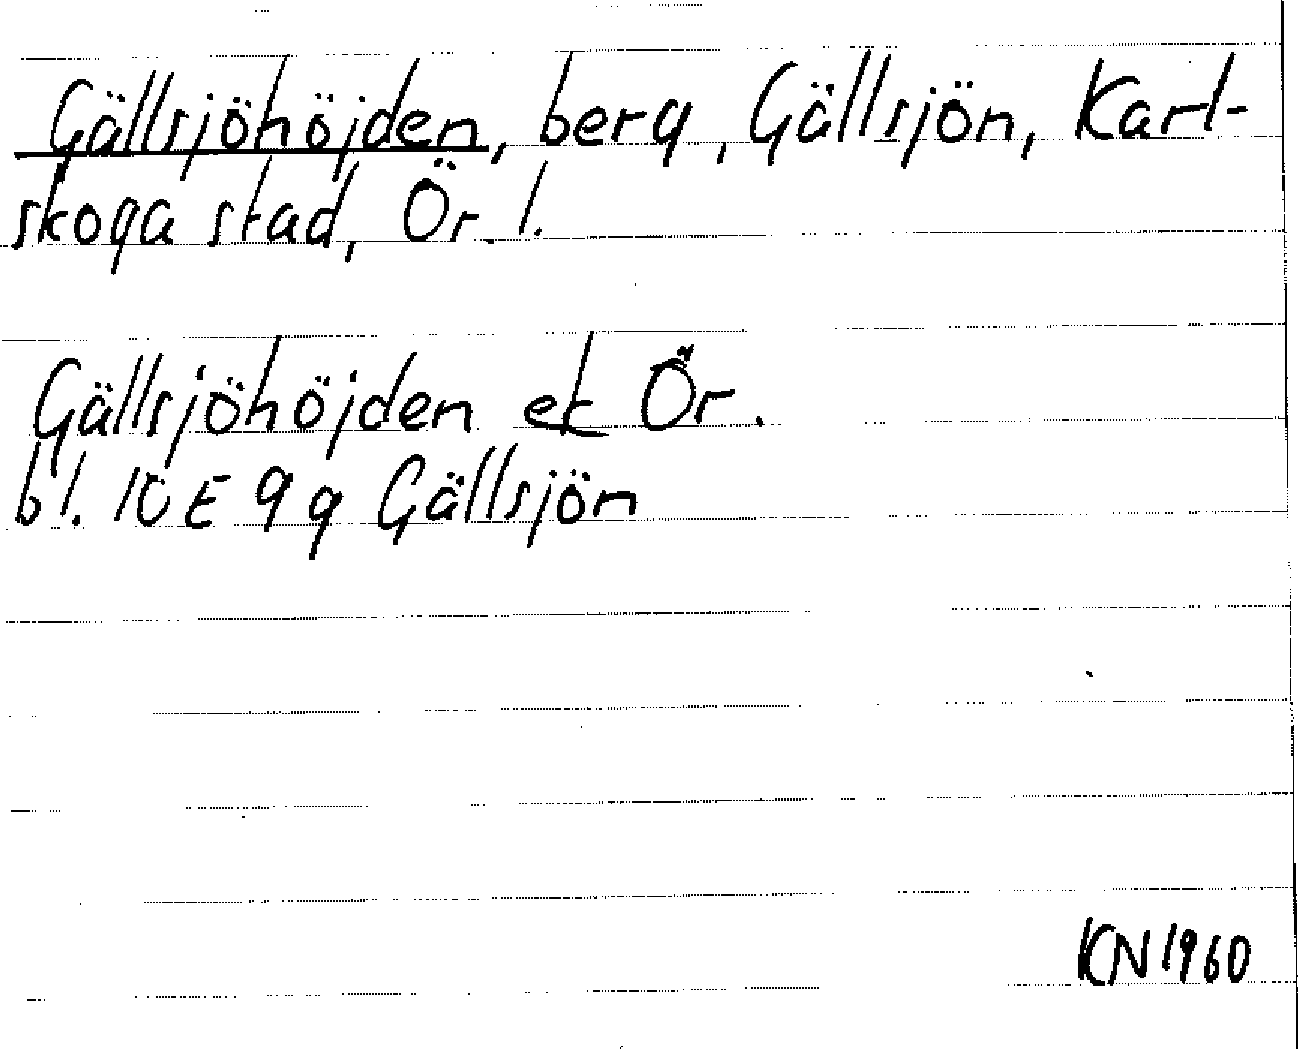 Gällsjöhöjden, berg, Gällsjön, Karl-
skoga stad, Ör. l.
Gällsjöhöjden ek Ör.
bl. 10 E 9 g Gällsjön
KN 1960